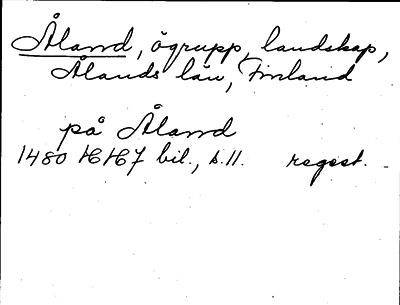 Åland, ögrupp, landskap,
Ålands län, Finland
på Åland
1480 16/67 bil., s.11. regest.